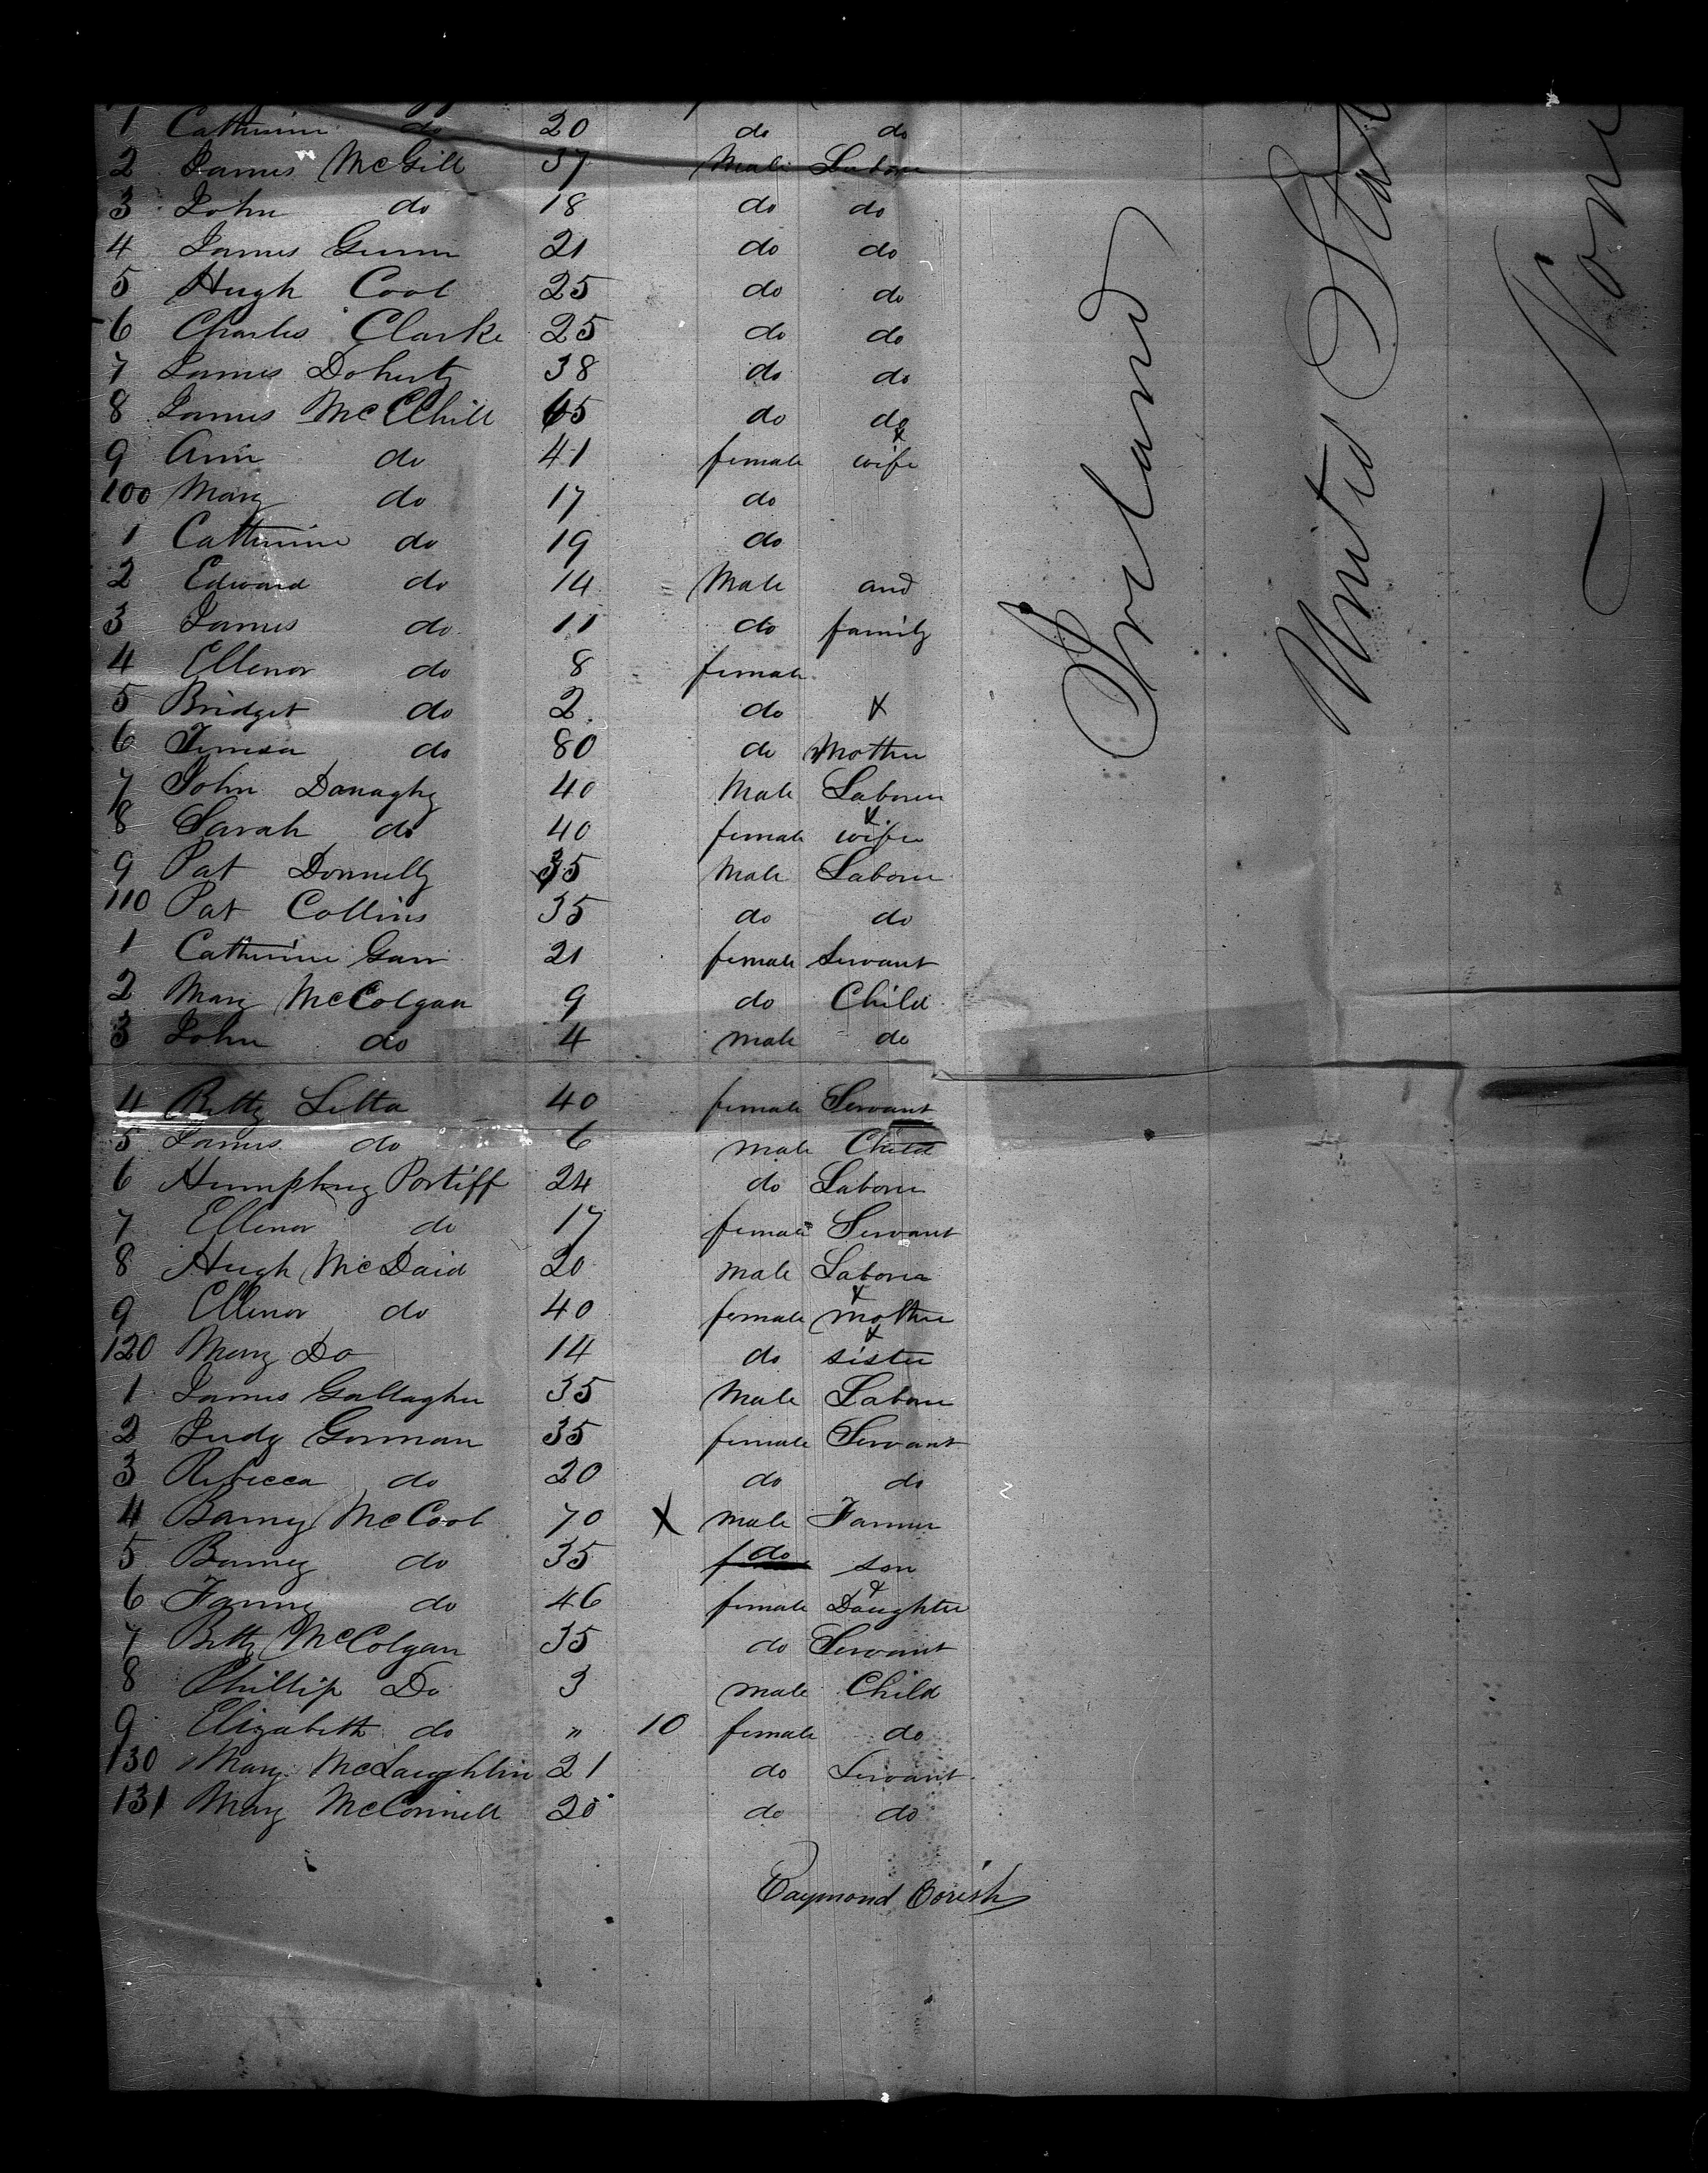 1 Catherine do 20 do do
2 James McGill 37 Male Labore
3 John do 18 do do
4 James Gunn 21 do do
5 Hugh Cool 25 do do
6 Charles Clarke 25 do do
7 James Doherty 38 do do
8 James McElhill 65 do do
9 Ann do 41 female wife
100 Mary do 17 do
1 Catherine do 19 do
2 Edward do 14 Male and
3 James do 11 do family
4 Ellenor do 8 female
5 Bridget do 2 do x
6 Teresa do 80 do Mother
7 John Danaghy 40 Male Laborer
8 Sarah do 40 female wife
9 Pat Donnelly 35 Male Laborer
110 Pat Collins 35 do do
1 Catherine Garr 21 female Servant
2 Mary McColgan 9 do Child
3 John do 4 male do
4 Betty Litta 40 female Servant
5 James do 6 male Child
6 Humphrey Portiff 24 do Laborer
7 Ellenor do 17 female Servant
8 Hugh McDaid 20 male Laborer
9 Ellenor do 40 female mother
120 Mary Do 14 do sister
1 James Gallagher 35 Male Laborer
2 Judy Gorman 35 female Servant
3 Rebecca do 20 do do
4 Barney McCool 70 X male Farmer
5 Barney do 35 do son
6 Fanny do 46 female Daughter
7 Betty McColgan 35 do Servant
8 Phillip Do 3 male Child
9 Elizabeth do " 10 female do
130 Mary McLaughlin 21 do Servant
131 Mary McConnell 20 do do
Raymond Corish
Ireland
United Stat
None